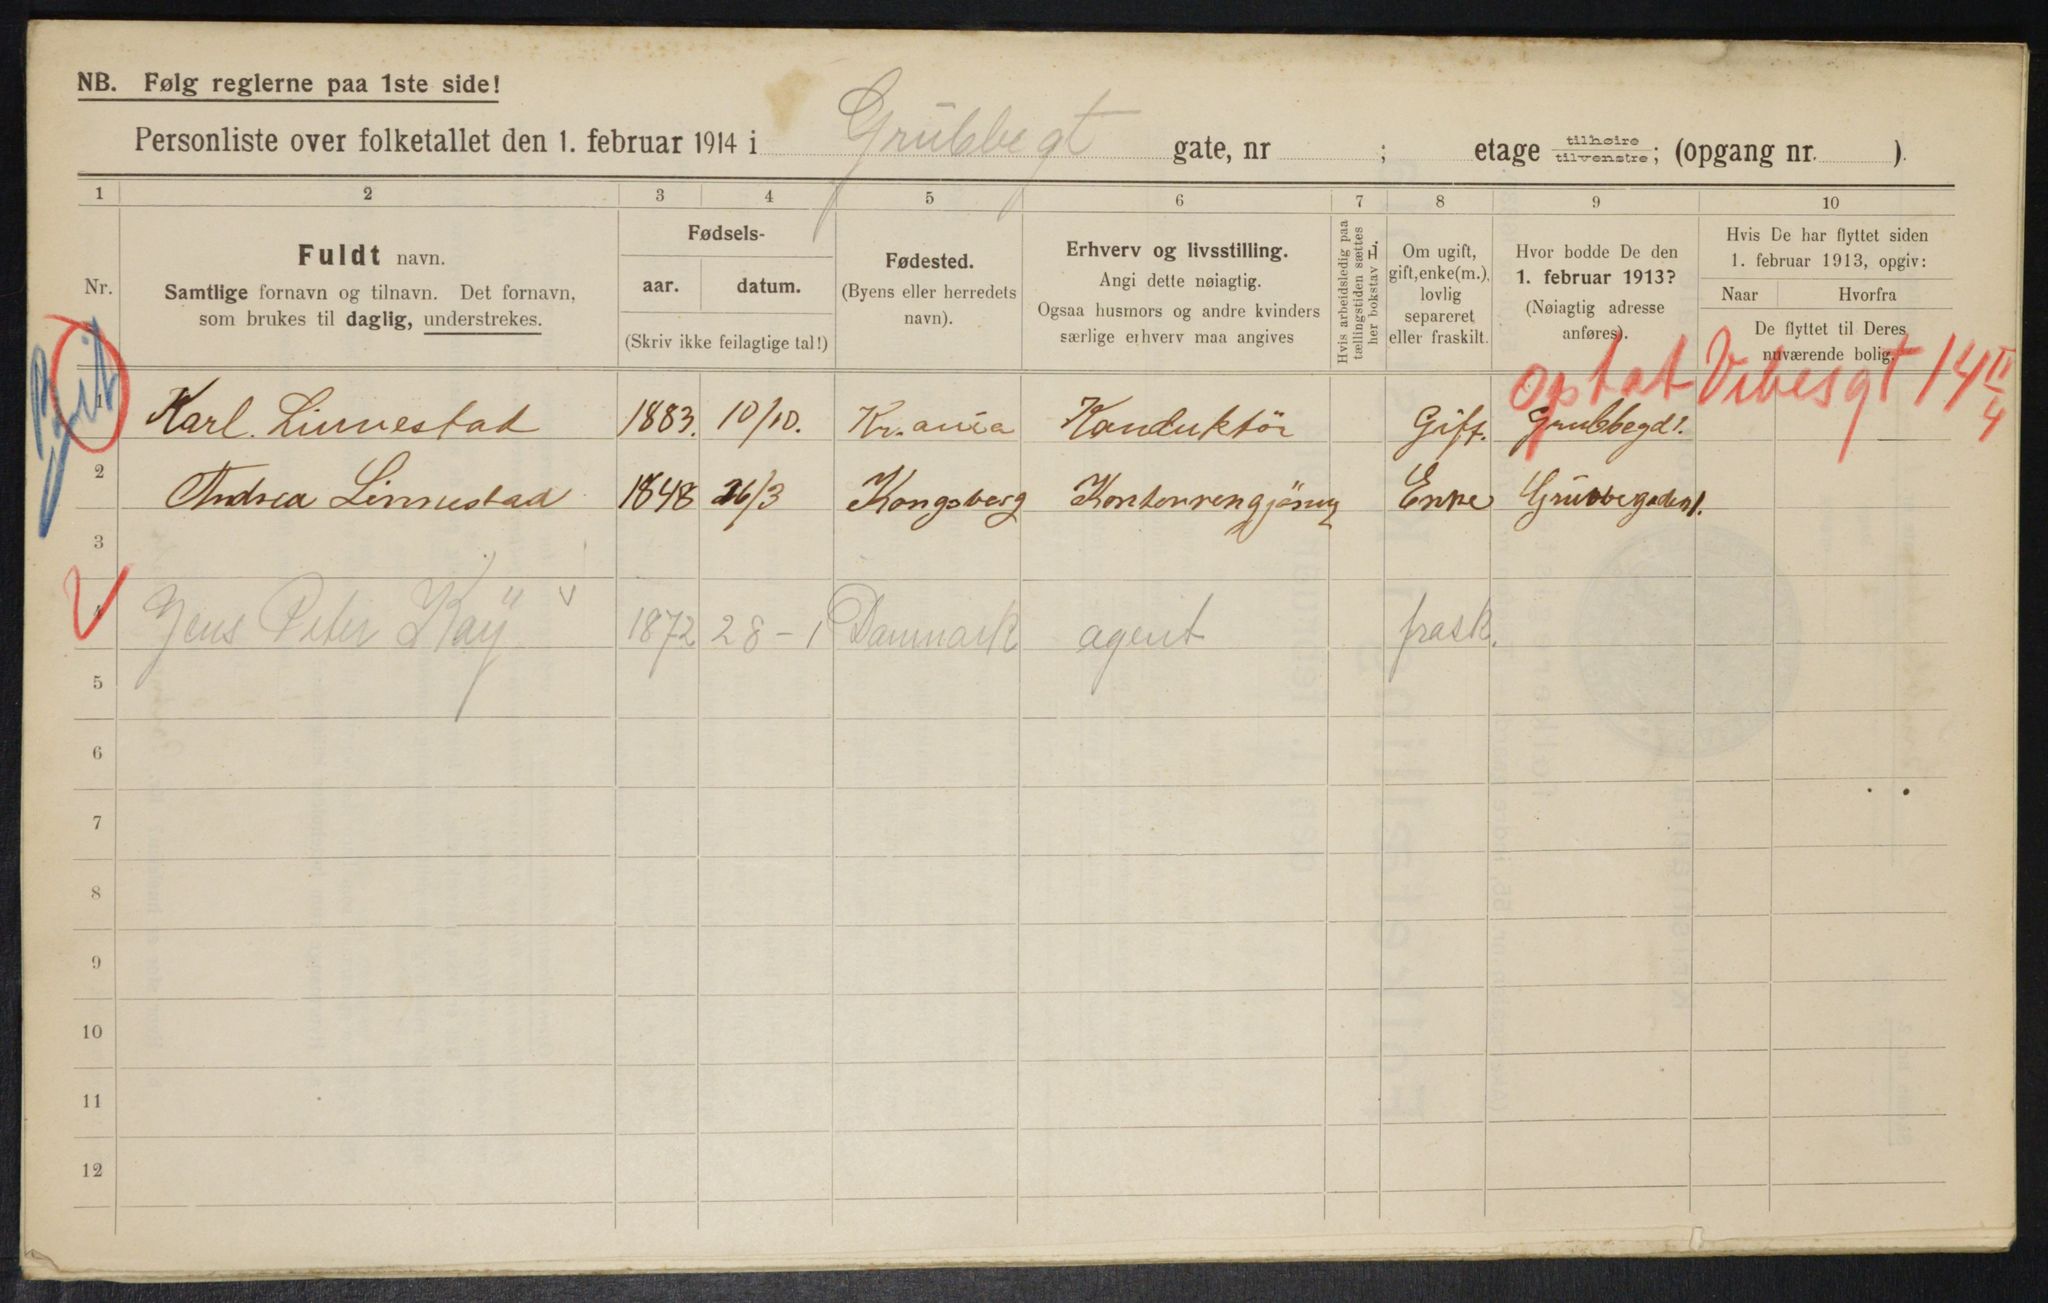 NB. Følg reglerne paa 1ste side!
Personliste over folketallet den 1. februar 1914 i Grubbegt gate, nr ; etage tilhøire tilvenstre; (opgang nr. ).
1 2 3 4 5 6 7 8 9 10
Nr.
Fuldt navn.
Samtlige fornavn og tilnavn. Det fornavn,
som brukes til daglig, understrekes.
Fødsels-
aar. datum.
(Skriv ikke feilagtige tal!)
Fødested.
(Byens eller herredets
navn).
Erhverv og livsstilling.
Angi dette nøiagtig.
Ogsaa husmors og andre kvinders
særlige erhverv maa angives
Hvis arbeidsledig paa
tællingstiden sættes
her bokstav L.
Om ugift,
gift, enke(m.),
lovlig
separeret
eller fraskilt.
Hvor bodde De den
1. februar 1913?
(Nøiagtig adresse
anføres).
Hvis De har flyttet siden
1. februar 1913, opgiv:
Naar Hvorfra
De flyttet til Deres
nuværende bolig.
optat Vibesgt 14 II/4
1 Karl. Linnestad 1883. 10/10. Kr.ania Konduktör Gift. Grubbegd1.
2 Andrea Linnestad 1848 26/3 Kongsberg Kontorrengjöring Enke Grubbegaden1.
3
4 Jens Peter Kay 1872 28-1 Danmark agent frask.
5
6
7
8
9
10
11
12